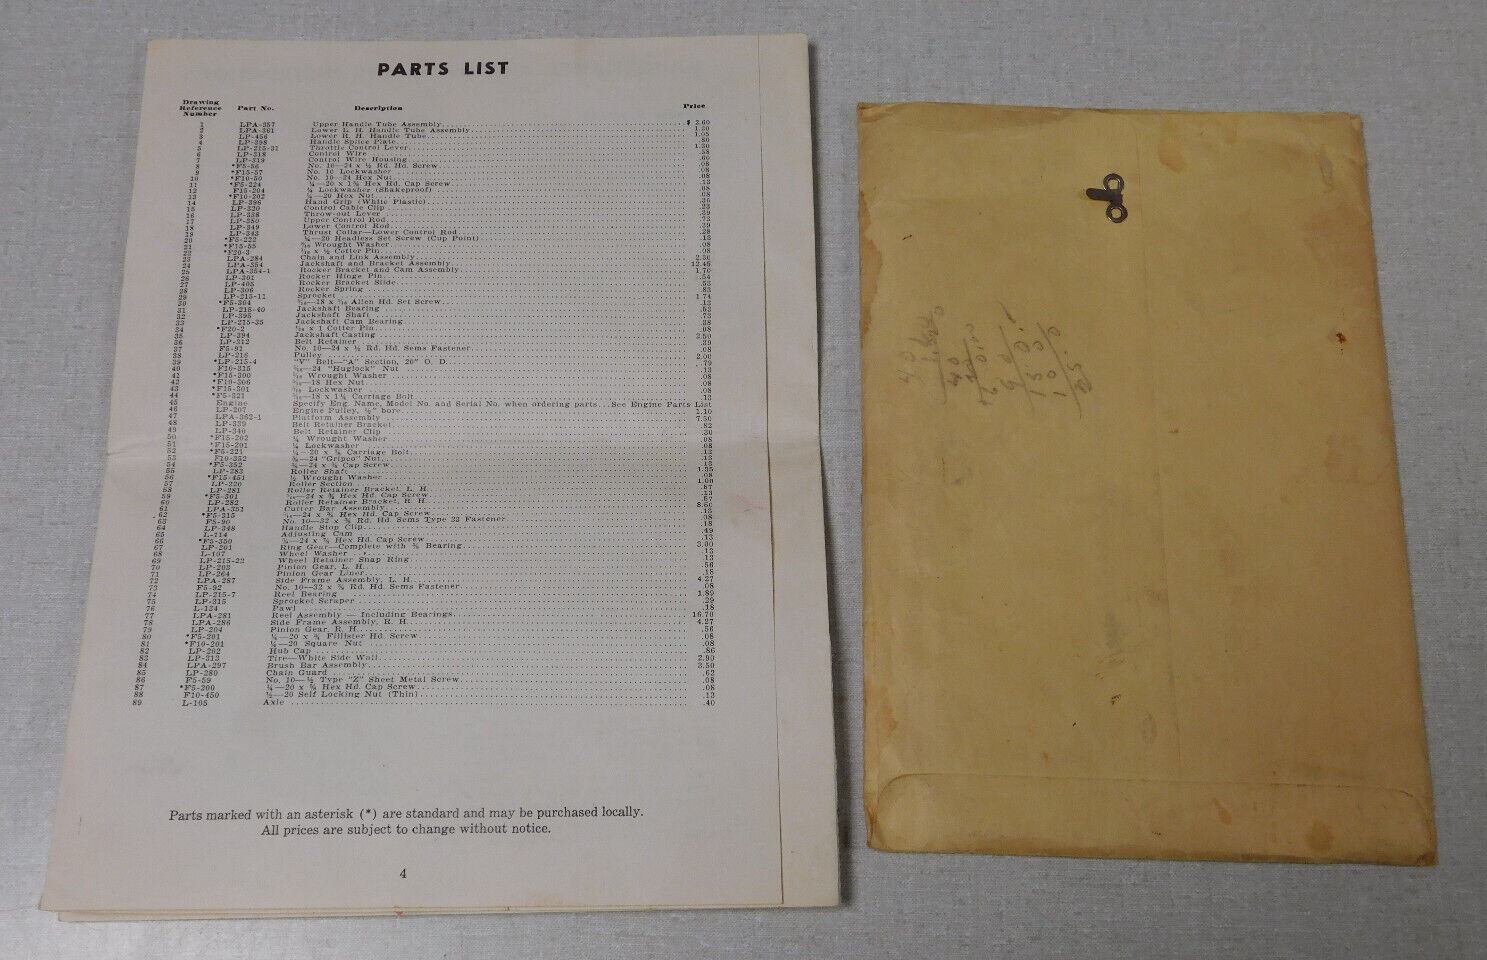 PARTS LIST
Drawing Reference Number Part No. Description Price
1 LPA-357 Upper Handle Tube Assembly $ 2.60
2 LPA-361 Lower L. H. Handle Tube Assembly 1.20
3 LP-456 Lower R. H. Handle Tube 1.05
4 LP-398 Handle Splice Plate .80
5 LP-215-31 Throttle Control Lever 1.30
6 LP-318 Control Wire .58
7 LP-319 Control Wire Housing .60
8 *F5-56 No. 10—24 x ½ Rd. Hd. Screw .08
9 *F15-57 No. 10 Lockwasher .08
10 *F10-50 No. 10—24 Hex Nut .08
11 *F5-224 ¼—20 x 1¾ Hex Hd. Cap Screw .13
12 F15-204 ¼ Lockwasher (Shakeproof) .08
13 *F10-202 ¼—20 Hex Nut .08
14 LP-396 Hand Grip (White Plastic) .36
15 LP-320 Control Cable Clip .23
16 LP-338 Throw-out Lever .39
17 LP-350 Upper Control Rod .73
18 LP-349 Lower Control Rod .39
19 LP-343 Thrust Collar—Lower Control Rod .28
20 *F5-222 ¼—20 Headless Set Screw (Cup Point) .13
21 *F15-55 Wrought Washer .08
22 *F20-3 x ½ Cotter Pin .08
23 LPA-284 Chain and Link Assembly 2.30
24 LPA-354 Jackshaft and Bracket Assembly 12.46
25 LPA-354-1 Rocker Bracket and Cam Assembly 1.70
26 LP-301 Rocker Hinge Pin .54
27 LP-405 Rocker Bracket Slide .53
28 LP-306 Rocker Spring .83
29 LP-215-11 Sprocket 1.74
30 *F5-304 ⁵⁄₁₆—18 x ⁵⁄₁₆ Allen Hd. Set Screw .13
31 LP-215-40 Jackshaft Bearing .53
32 LP-395 Jackshaft Shaft .73
33 LP-215-35 Jackshaft Cam Bearing .38
34 *F20-2 x 1 Cotter Pin .08
35 LP-394 Jackshaft Casting 2.50
36 LP-312 Belt Retainer .39
37 F5-91 No. 10—24 x ½ Rd. Hd. Sems Fastener .08
38 LP-216 Pulley 2.00
39 *LP-215-4 "V" Belt—"A" Section, 20" O. D. .79
40 F10-315 ⁵⁄₁₆—24 "Huglock" Nut .13
41 *F15-300 ⁵⁄₁₆ Wrought Washer .08
42 *F10-306 ⁵⁄₁₆—18 Hex Nut .08
43 *F15-301 ⁵⁄₁₆ Lockwasher .08
44 *F5-321 ⁵⁄₁₆—18 x 1¼ Carriage Bolt .13
45 Engine Specify Eng. Name, Model No. and Serial No. when ordering parts...See Engine Parts List
46 LP-207 Engine Pulley, ½" bore 1.10
47 LPA-362-1 Platform Assembly 7.50
48 LP-339 Belt Retainer Bracket .82
49 LP-340 Belt Retainer Clip .30
50 *F15-202 ¼ Wrought Washer .08
51 *F15-201 ¼ Lockwasher .08
52 *F5-221 ¼—20 x ¾ Carriage Bolt .13
53 F10-352 ⅜—24 "Gripco" Nut .13
54 *F5-352 ⅜—24 x ¾ Cap Screw .13
55 LP-283 Roller Shaft 1.35
56 *F15-451 ½ Wrought Washer .08
57 LP-220 Roller Section 1.00
58 LP-281 Roller Retainer Bracket, L. H. .67
59 *F5-301 ⁵⁄₁₆—24 x ¾ Hex Hd. Cap Screw .13
60 LP-282 Roller Retainer Bracket, R. H. .67
61 LPA-351 Cutter Bar Assembly 8.60
62 *F5-315 ⁵⁄₁₆—24 x ¾ Hex Hd. Cap Screw .13
63 F5-90 No. 10—32 x ⅜ Rd. Hd. Sems Type 23 Fastener .08
64 LP-348 Handle Stop Clip .18
65 L-114 Adjusting Cam .49
66 *F5-350 ⅜—24 x ⅞ Hex Hd. Cap Screw .13
67 LP-201 Ring Gear—Complete with ⅝ Bearing 3.00
68 L-107 Wheel Washer .13
69 LP-215-22 Wheel Retainer Snap Ring .13
70 LP-203 Pinion Gear, L. H. .56
71 LP-264 Pinion Gear Liner .18
72 LPA-287 Side Frame Assembly, L. H. 4.27
73 F5-92 No. 10—32 x ⅜ Rd. Hd. Sems Fastener .08
74 LP-215-7 Reel Bearing 1.89
75 LP-315 Sprocket Scraper .29
76 L-134 Pawl .18
77 LPA-281 Reel Assembly — Including Bearings 16.70
78 LPA-286 Side Frame Assembly, R. H. 4.27
79 LP-204 Pinion Gear, R. H. .56
80 *F5-201 ¼—20 x ¾ Fillister Hd. Screw .08
81 *F10-201 ¼—20 Square Nut .08
82 LP-262 Hub Cap .86
83 LP-313 Tire—White Side Wall 2.90
84 LPA-297 Brush Bar Assembly 3.50
85 LP-280 Chain Guard .62
86 F5-59 No. 10—½ Type "Z" Sheet Metal Screw .08
87 *F5-200 ¼—20 x ⅝ Hex Hd. Cap Screw .08
88 F10-450 ½—20 Self Locking Nut (Thin) .13
89 L-105 Axle .40
Parts marked with an asterisk (*) are standard and may be purchased locally.
All prices are subject to change without notice.
4